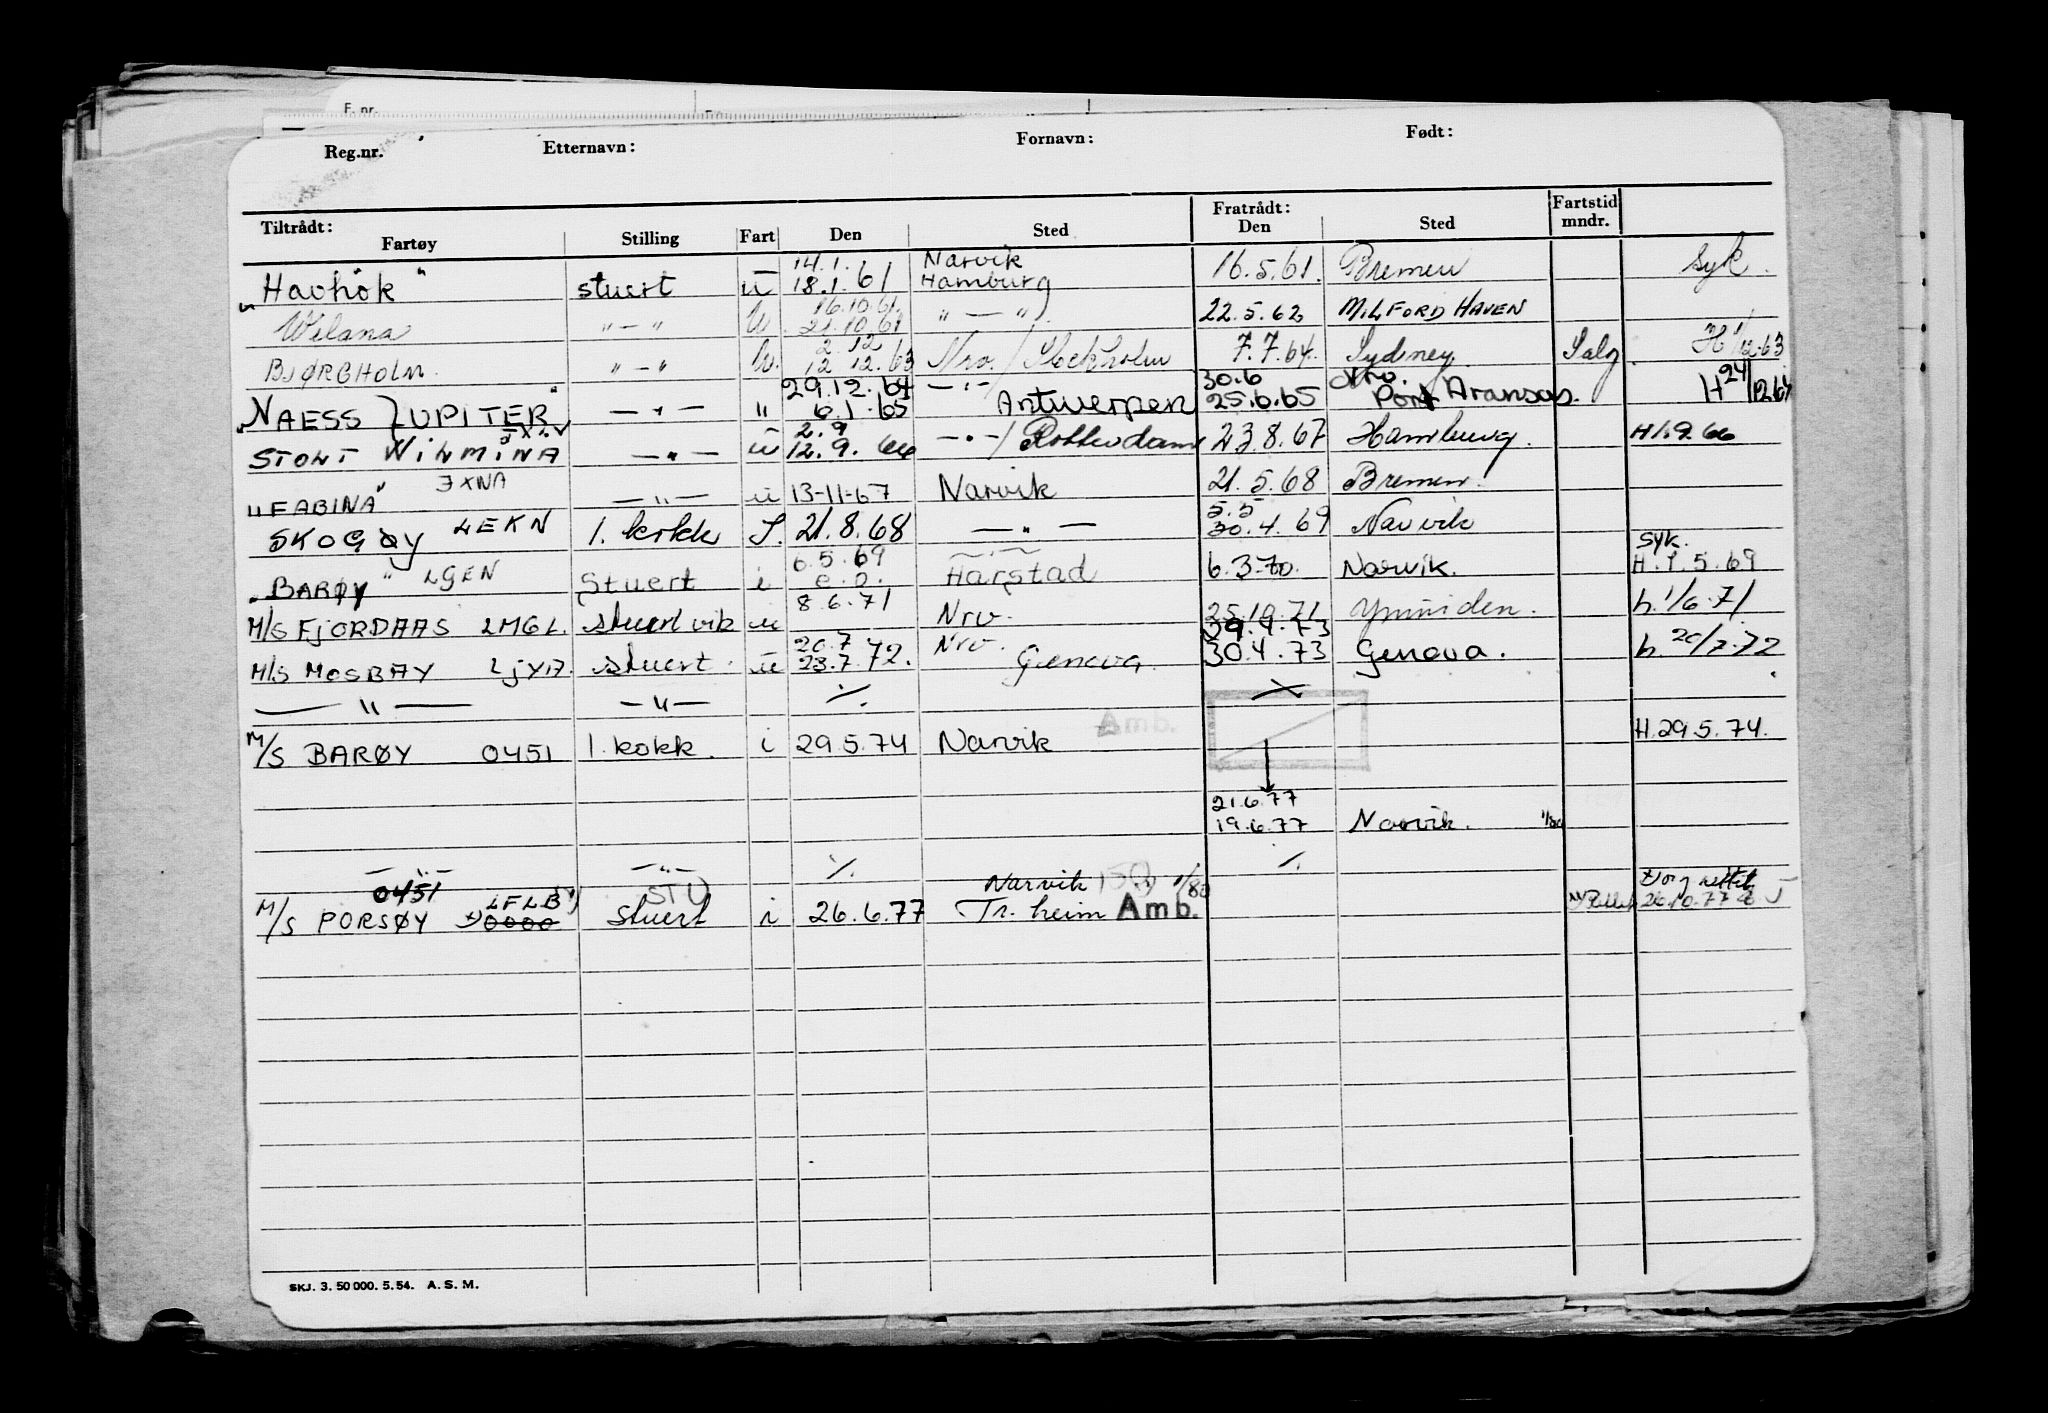 F. nr.
Reg.nr. Etternavn: Fornavn: Født:
Tiltrådt: Fratrådt: Fartstid
Fartøy Stilling Fart Den Sted Den Sted mndr.
14.1. Narvik
"Havhök" stuert u 18.1.61 Hamburg 16.5.61. Bremen syk.
16.10.61
Wilana " — " U. 21.10.61 " — " 22.5.62 MILFORD HAVEN
2.12
BJØRGHOLM. " — " U. 12.12.63 Nrv. / Stockholm 7.7.64. Sydney Salg H 1/12.63
29.12.64 — " — 30.6 Nrv.
"NAESS JUPITER" — " — " 6.1.65 Antwerpen 25.6.65 Port Aransas. H 24/12.64
2.9
STOLT WILMINA — " — u 12.9.66 — " — / Rotterdam 23.8.67 Hamburg. H 1.9.66
"FABINA" JXNA — " — u 13-11-67 Narvik 21.5.68 Bremen.
5.5
SKOGØY LEKN 1. kokk I. 21.8.68 — " — 30.4.69 Narvik
6.5.69 syk.
"BARØY" LGEN Stuert i e.o. Harstad 6.3.70. Narvik. H.1.5.69
8.6.71
M/S FJORDAAS LMGL. stuert vik u Nrv. 25.10.71 Ymuiden. h. 1/6.71
20.7 Nrv. 29.4.73
M/S MOSBAY LJYA. stuert. u 23.7.72. Genova. 30.4.73 Genova. h. 20/7.72
— " — — " — ./.
Amb.
M/S BARØY 0451 1. kokk. i 29.5.74 Narvik H.29.5.74.
21.6.77
19.6.77 Narvik. 1/80
— " — — " — ./. ./.
0451 LFLB STU Narvik 1/80
M/S PORSØY 0000 stuert i 26.6.77 Tr. heim Amb. 26.10.77
SKJ. 3. 50 000. 5. 54. A. S. M.